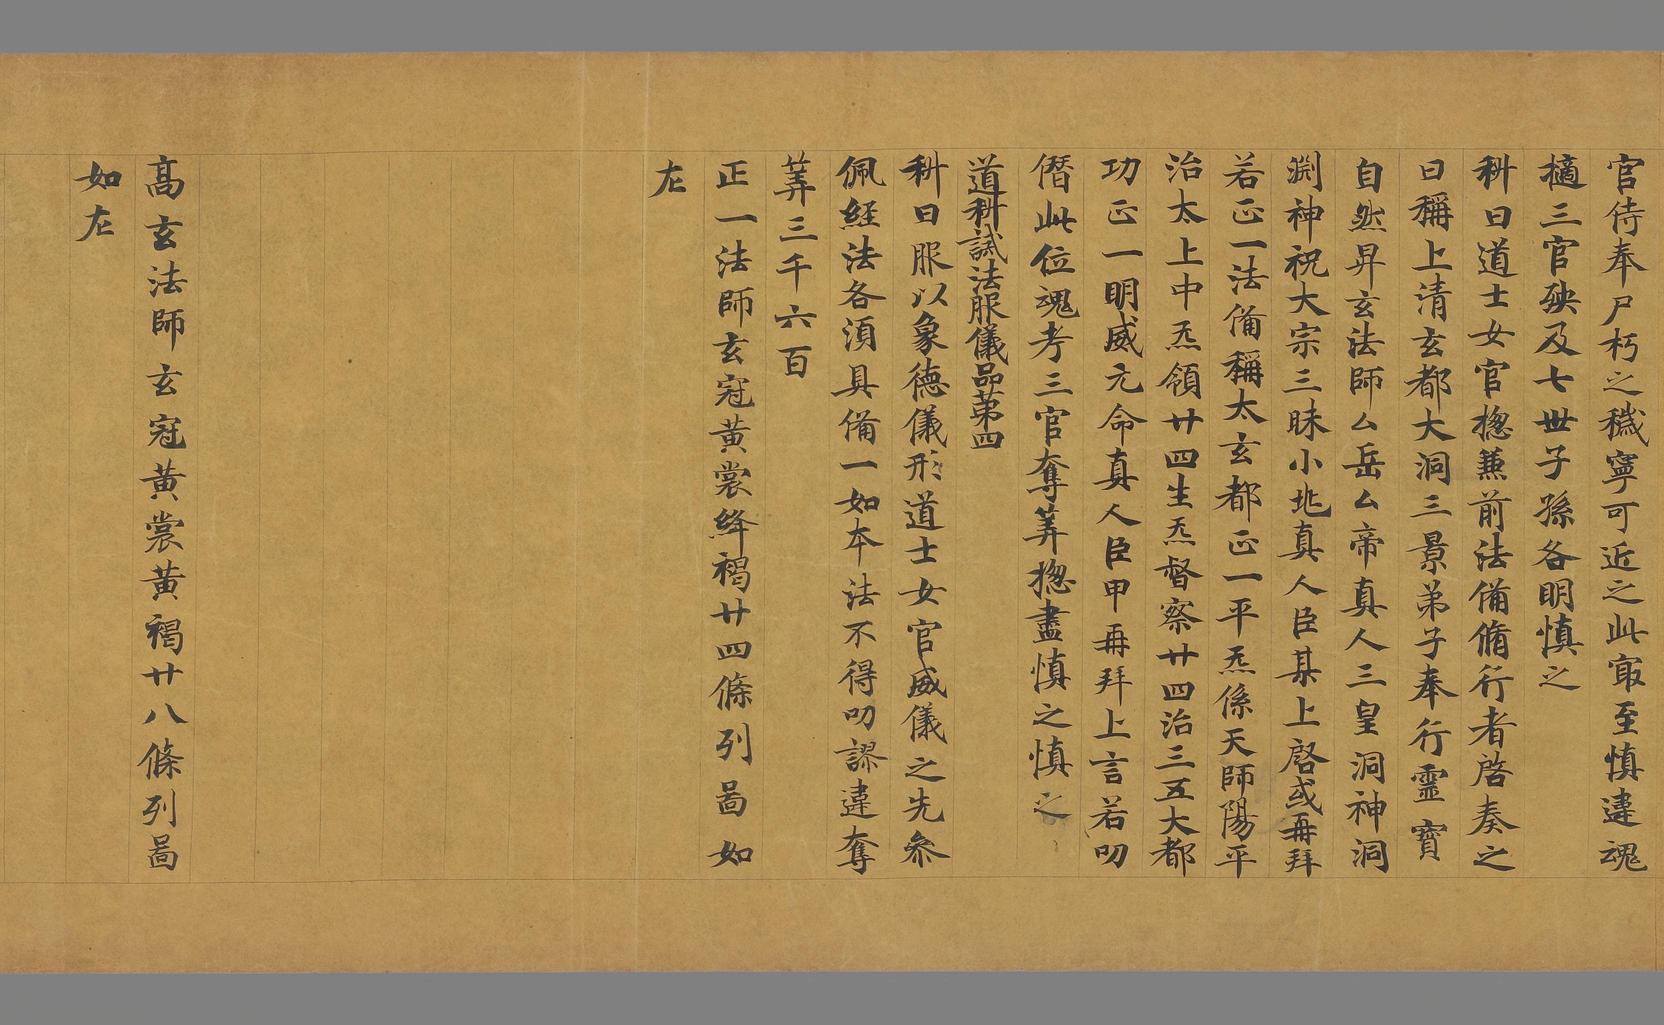 官侍奉尸朽之穢寧可近之此㝡至慎違魂
擿三官殃及七世子孫各明慎之
科曰道士女官揔兼前法備脩行者啓奏之
曰稱上清玄都大洞三景弟子奉行靈寳
自然昇玄法師厶岳厶帝真人三皇洞神洞
渕神祝大宗三昧小兆真人臣某上啓或再拜
若正一法備稱太玄都正一平炁係天師陽平
治太上中炁領廿四生炁督察廿四治三五大都
功正一明威元命真人臣甲再拜上言若叨
僭此位魂考三官奪筭揔盡慎之慎之
道科誡法服儀品苐四
科曰服以象德儀形道士女官威儀之先叅
佩経法各湏具備一如本法不得叨謬違奪
筭三千六百
正一法師玄冠黄裳絳褐廿四條列啚如
左
髙玄法師玄冠黄裳黄褐廿八條列啚
如左